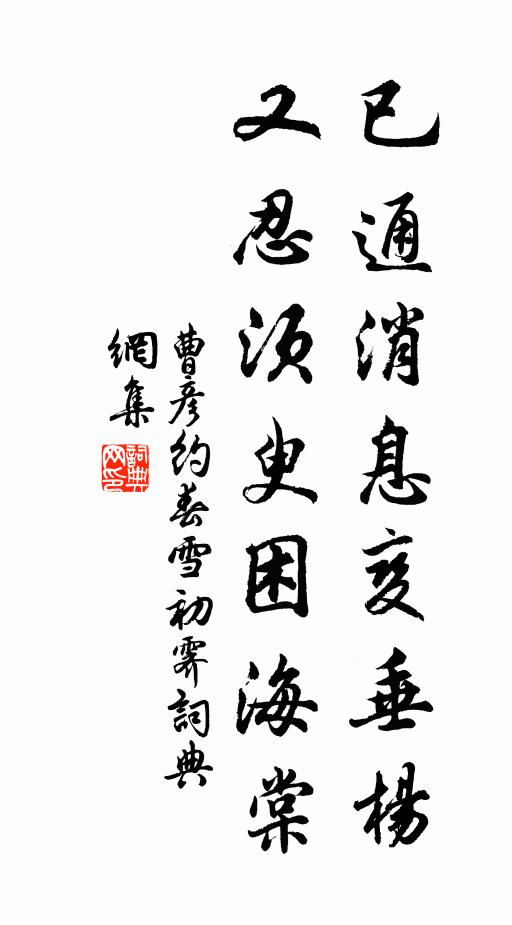 已通消息变垂楊
又忍須臾困海棠
曹彦約春雪初霽詞典
網集
詞典網印